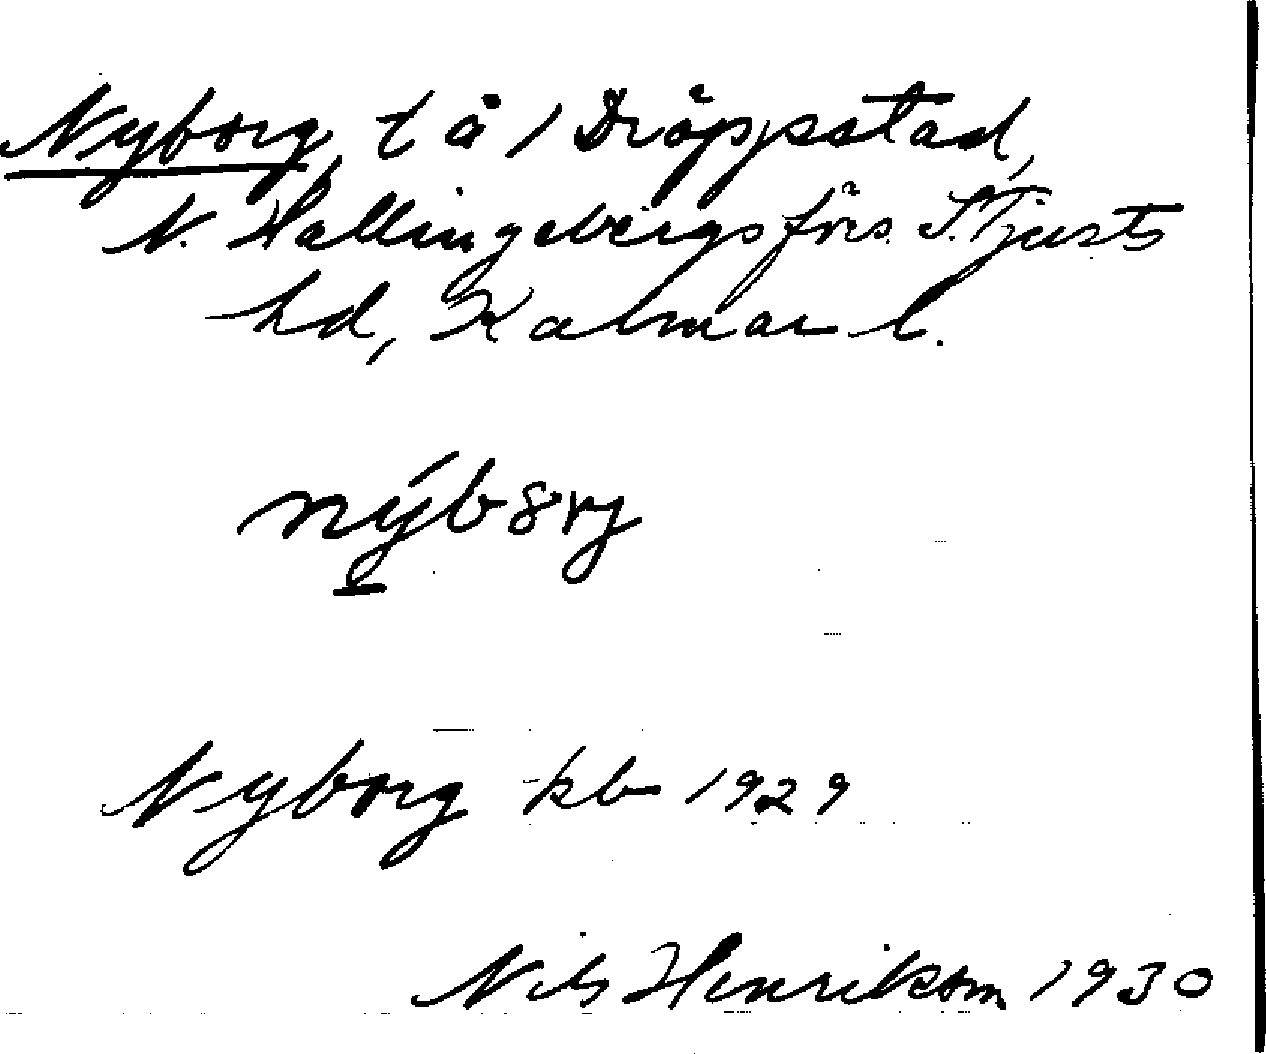 Nyborg, t å 1 Dröppstad,
N. Hallingebergs förs. S. Tjusts
hd, Kalmar l.
nýb8rj
Nyborg kb 1929
Nils Henrikson 1930